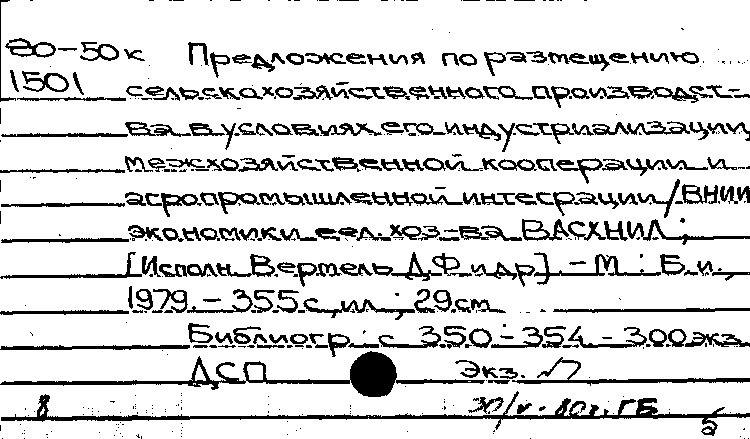 80-50к Предложения по размещению
1501 сельскохозяйственного производст-
ва в условиях его индустриализации,
межхозяйственной кооперации и
агропромышленной интеграции / ВНИИ
экономики сел. хоз-ва ВАСХНИЛ ;
[Исполн. Вертель Д.Ф и др]. - М : Б.и.,
1979. - 355 с, ил ; 29 см
Библиогр : с 350 - 354 - 300 экз
ДСП Экз. №
8 30/V-80г. ГБ